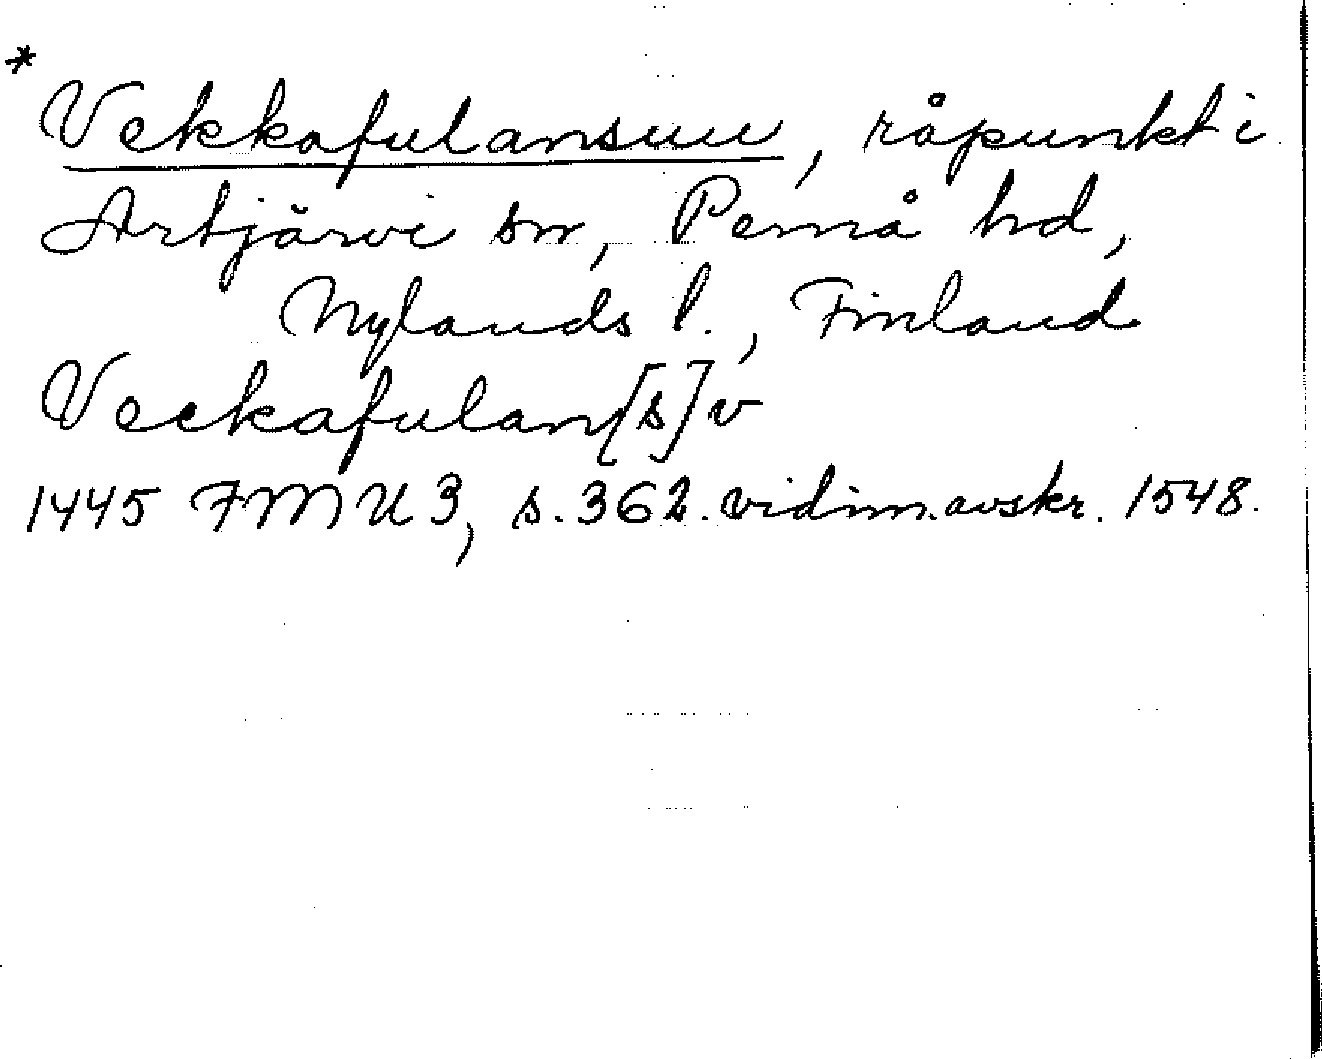 * Vekkafulansuu, råpunkt i
Artjärvi sn, Pernå hd,
Nylands l., Finland
Veckafulan[s]v
1445 FMU 3, s. 362. vidim. avskr. 1548.